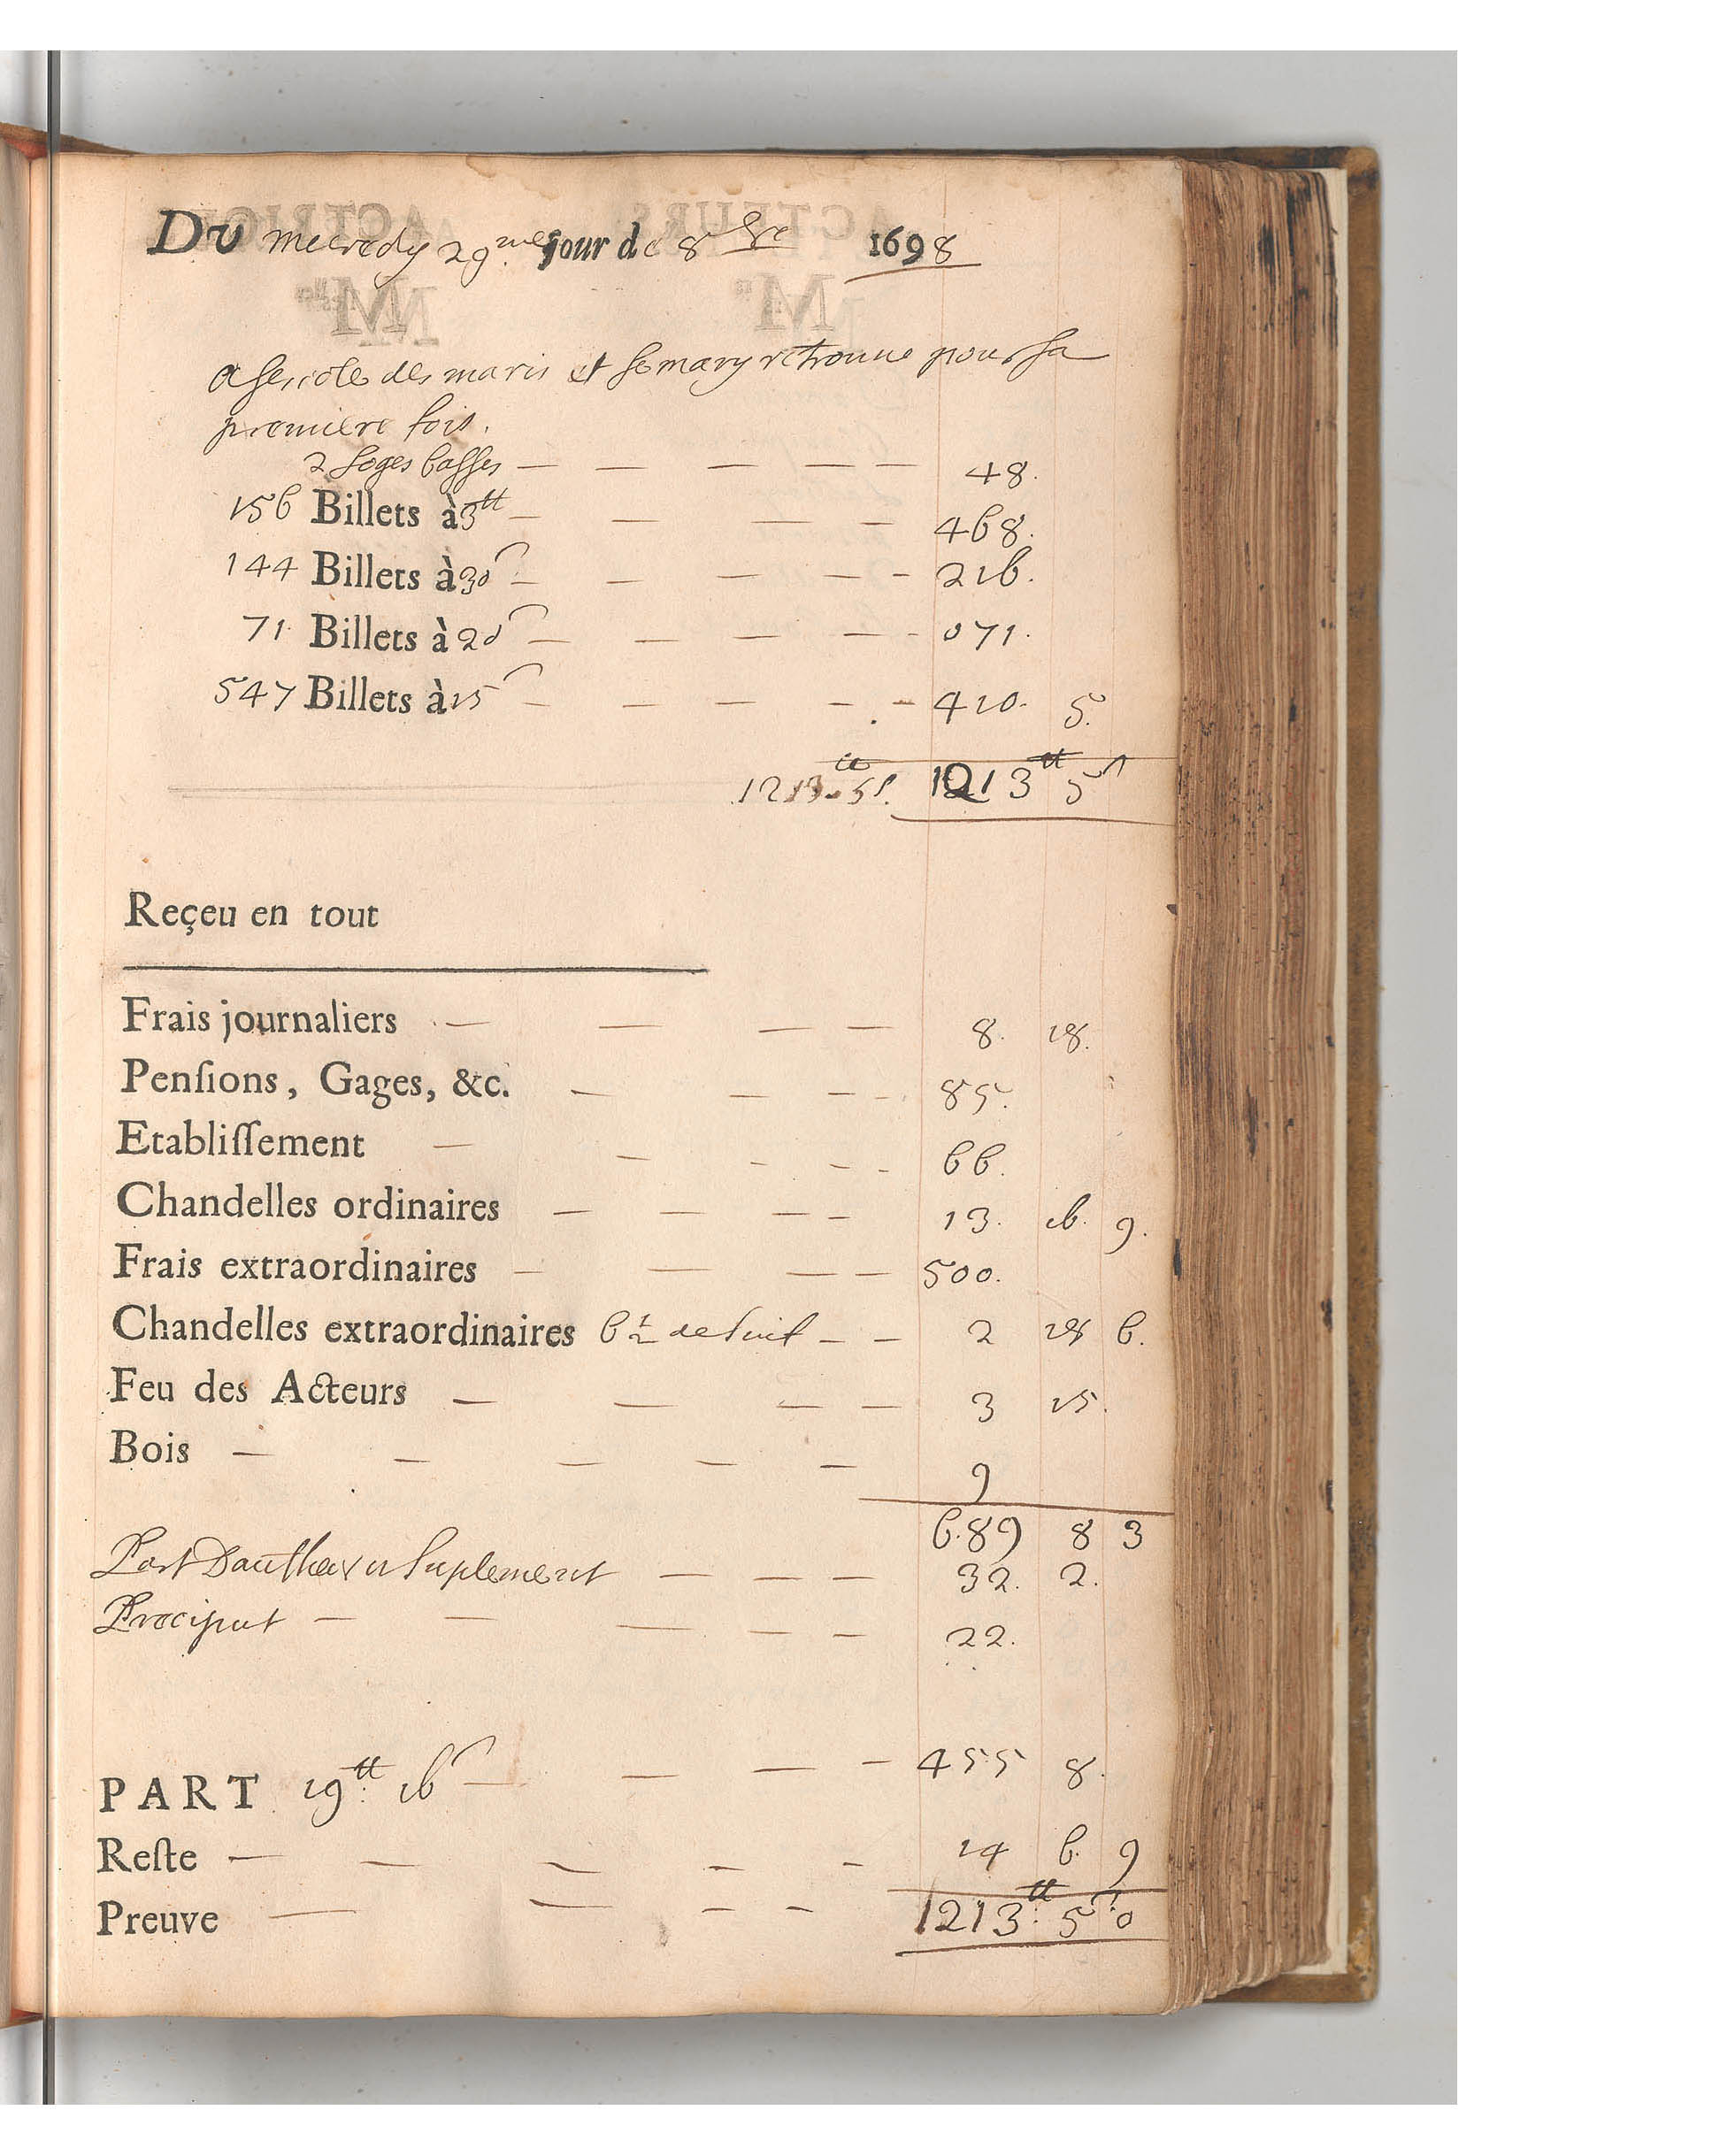 DU mecredy 29.me jour de 8bre 1698
a Lescole des maris et Le mary retrouué pour la
première fois.
2 Loges basses — — — — — 48.
156 Billets à 3tt — — — — 468.
144 Billets à 30s — — — — - 216.
71. Billets à 20s — — — — - 071.
547 Billets à 15s — — — - - 410. 5.
1213tt 5s. 1213tt 5s
Reçeu en tout
Frais journaliers — — — — 8. 18.
Penſions, Gages, &c. — — - - 85.
Etabliſſement — — - - - 66.
Chandelles ordinaires — — — - 13. 16. 9.
Frais extraordinaires — — — — 500.
Chandelles extraordinaires 6 1/2 de Suif — — 2 18 6.
Feu des Acteurs — — — — 3 15.
Bois — — — — — 9
689 8 3
Part Dautheur et Suplement — — — 32. 2.
Preciput — — — — — 22.
PART 19tt 16s — — — - 455 8.
Reſte — — — — - 14 6. 9
Preuve — — - - 1213tt 5s 0